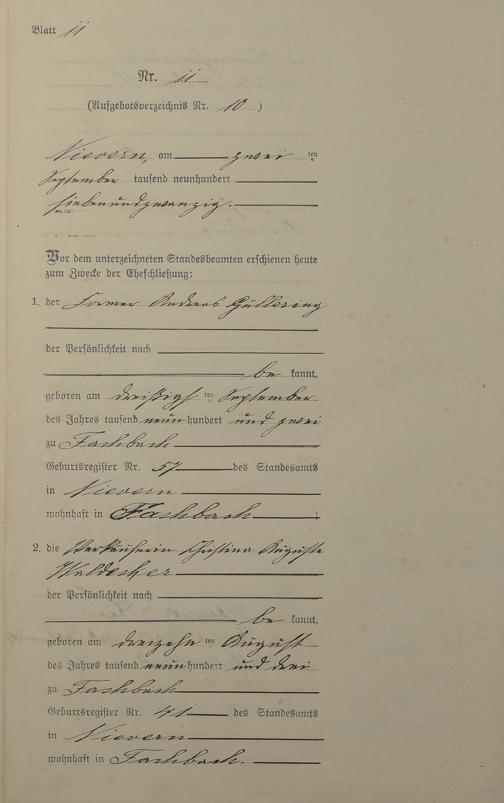 Blatt 11
Nr. 11
(Aufgebotsverzeichnis Nr. 10)
Nievern, am zwei ten
September tausend neunhundert
siebenundzwanzig.
Vor dem unterzeichneten Standesbeamten erschienen heute
zum Zwecke der Eheschließung:
1. der Former Andreas Güllering
der Persönlichkeit nach
be kannt,
geboren am dreißigst ten September
des Jahres tausend neun hundert und zwei
zu Fachbach
Geburtsregister Nr. 57 des Standesamts
in Nievern
wohnhaft in Fachbach ;
2. die Verkäuferin Christina Auguste
der Persönlichkeit nach
be kannt,
geboren am dreizehn ten August
des Jahres tausend neun hundert und drei
zu Fachbach
Geburtsregister Nr. 41 des Standesamts
in Nievern
wohnhaft in Fachbach.